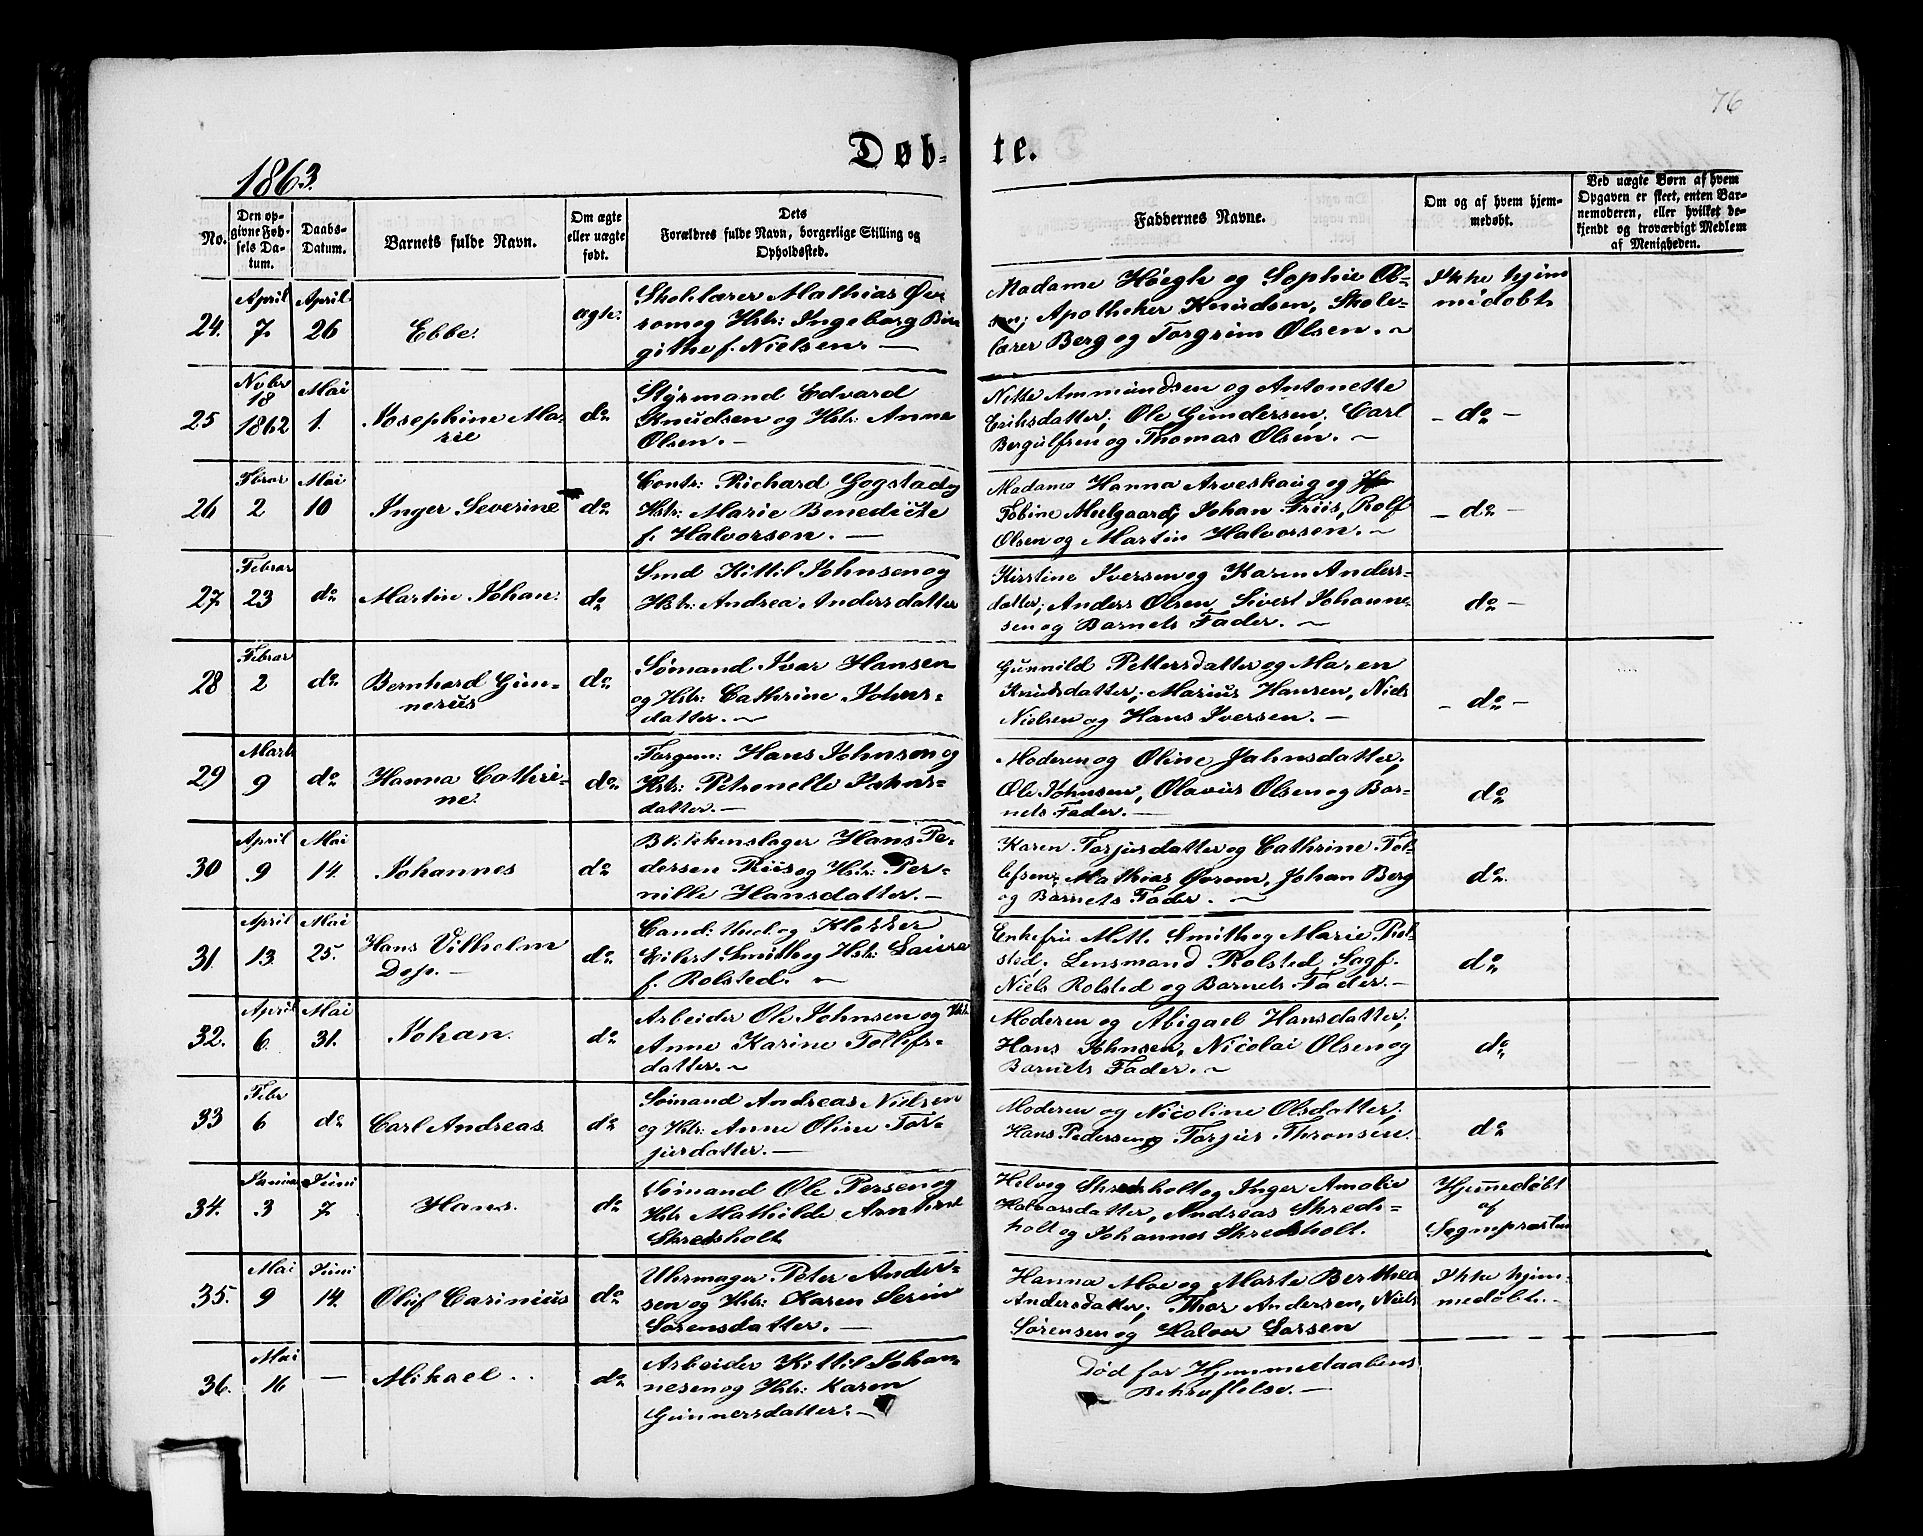 76
Døb- te.
1863.
No.
Den opgivne Fødsels Datum.
Daabs-Datum.
Barnets fulde Navn.
Om ægte eller uægte født.
Dets Forældres fulde Navn, borgerlige Stilling og Opholdssted.
Faddernes Navne.
Om og af hvem hjemmedøbt.
Ved uægte Børn af hvem Opgaven er skeet, enten Barnemoderen, eller hvilket bekjendt og troværdigt Medlem af Menigheden.
24. April 7. April 26 Ebbe. ægte:
Skolelærer Mathias Øve
rom og Hstr: Ingeborg Bir
githe f. Nielsen. —
Madame Høegh og Sophie Ol-
sen; Apotheker Knudsen, Skole-
lærer Berg og Torgrim Olsen. ~
Ikke hjem
medøbt.
25 Novbr 18 1862 Mai 1. Josephine Ma-
rie
do
Styrmand Edvard
Knudsen og Hstr: Anne
Olsen. —
Nikke Ammundsen og Antonette
Eriksdatter; Ole Gundersen, Carl
Bergulfsen og Thomas Olsen. ~
— do —
26 Febrar 2 Mai 10 Inger Severine do
Contr: Richard Gogstad og
Hstr: Marie Benedicte
f. Halvorsen. —
Madame Hanna Arveshaug og
Tobine Mielgaard; Johan Friis, Rolf
Olsen og Martin Halvorsen. ~
— do —
27 Febrar 23 do Martin Johan. do
Smd Kittil Johnsen og
Hstr: Andrea Andersdatter
Kirstine Iversen og Karen Anders-
datter; Anders Olsen, Sivert Johanne-
sen og Barnets Fader. ~
do —
28 Febrar 2 do Bernhard Gun-
nerus
do
Sømand Ivar Hansen
og Hstr: Cathrine Johns-
datter. ~
Gunnild Pettersdatter og Maren
Knudsdatter; Marius Hansen, Niels
Nielsen og Hans Iversen. —
— do —
29 Marts 9 do Hanna Cathri-
ne.
do
Hans Johnsen og
Hstr: Petronelle Johns-
datter. —
Moderen og Oline Jahnsdatter,
Ole Johnsen, Olavus Olsen og Bar-
nets Fader. —
do
30 April 9 Mai 14. Johannes do
Blikkenslager Hans Pe-
dersen Riis og Hstr: Per-
nille Hansdatter. —
Karen Torjusdatter og Cathrine Tol-
lefsen; Mathias Øverom, Johan Berg
og Barnets Fader. ~
do.
31. April 13. Mai 25. Hans Vilhelm
Dop. —
do
Cand: theol og Klokker
Eilert Smith og Hstr: Laura
f. Rolsted. ~
Enkefru Mett. Smith og Marie Rol-
sted, Lensmand Rolsted, Sagf.
Niels Rolsted og Barnets Fader. —
do
32. April 6. Mai 31. Johan. do
Arbeider Ole Johnsen og Hst.
Anne Karine Tollefs-
datter. ~
Moderen og Abigael Hansdatter;
Hans Johnsen, Nicolai Olsen og
Barnets Fader. ~
do
33 Febr 6 do Carl Andreas do
Sømand Andreas Nielsen
og Hstr: Anne Oline Tor-
jusdatter. —
Moderen og Nicoline Olsdatter;
Hans Pedersen og Torjus Thronsen.
do
34. Januar 3 Juni 7. Hans. do
Sømand Ole Persen og
Hstr Mathilde Arntine
Skredsholt
Helveg Skredsholt og Inger Amalie
Halvorsdatter, Andreas Skreds-
holt og Johannes Skredsholt.
Hjemmedøbt
af
Sognepræsten
35. Mai 9 Juni 14. Oluf Carinius do
Uhrmager Peter Ander-
sen og Hstr: Karen Serine
Sørensdatter. —
Hanna Moe og Marte Berthea
Andersdatter; Thor Andersen, Niels
Sørensen og Halvor Larsen
Ikke hjem-
medøbt. —
36. Mai 16 — Mikael. do
Arbeider Kittil Johan-
nesen og Hstr: Karen
Gunnersdatter. —
Død før Hjemmedaabens
Bekræftelse. —